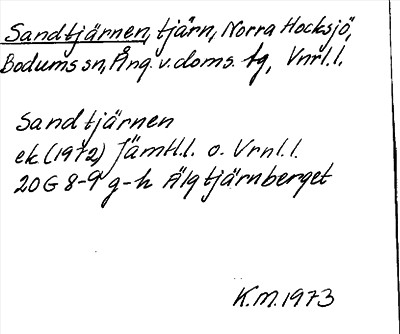 Sandtjärnen, tjärn, Norra Hocksjö,
Bodums sn, Ång. v. doms. tg, Vnrl.l.
Sandtjärnen
ek. (1972) Jämtl.l. o. Vrnl.l.
20G 8-9 g-h Älgtjärnberget
K.M. 1973